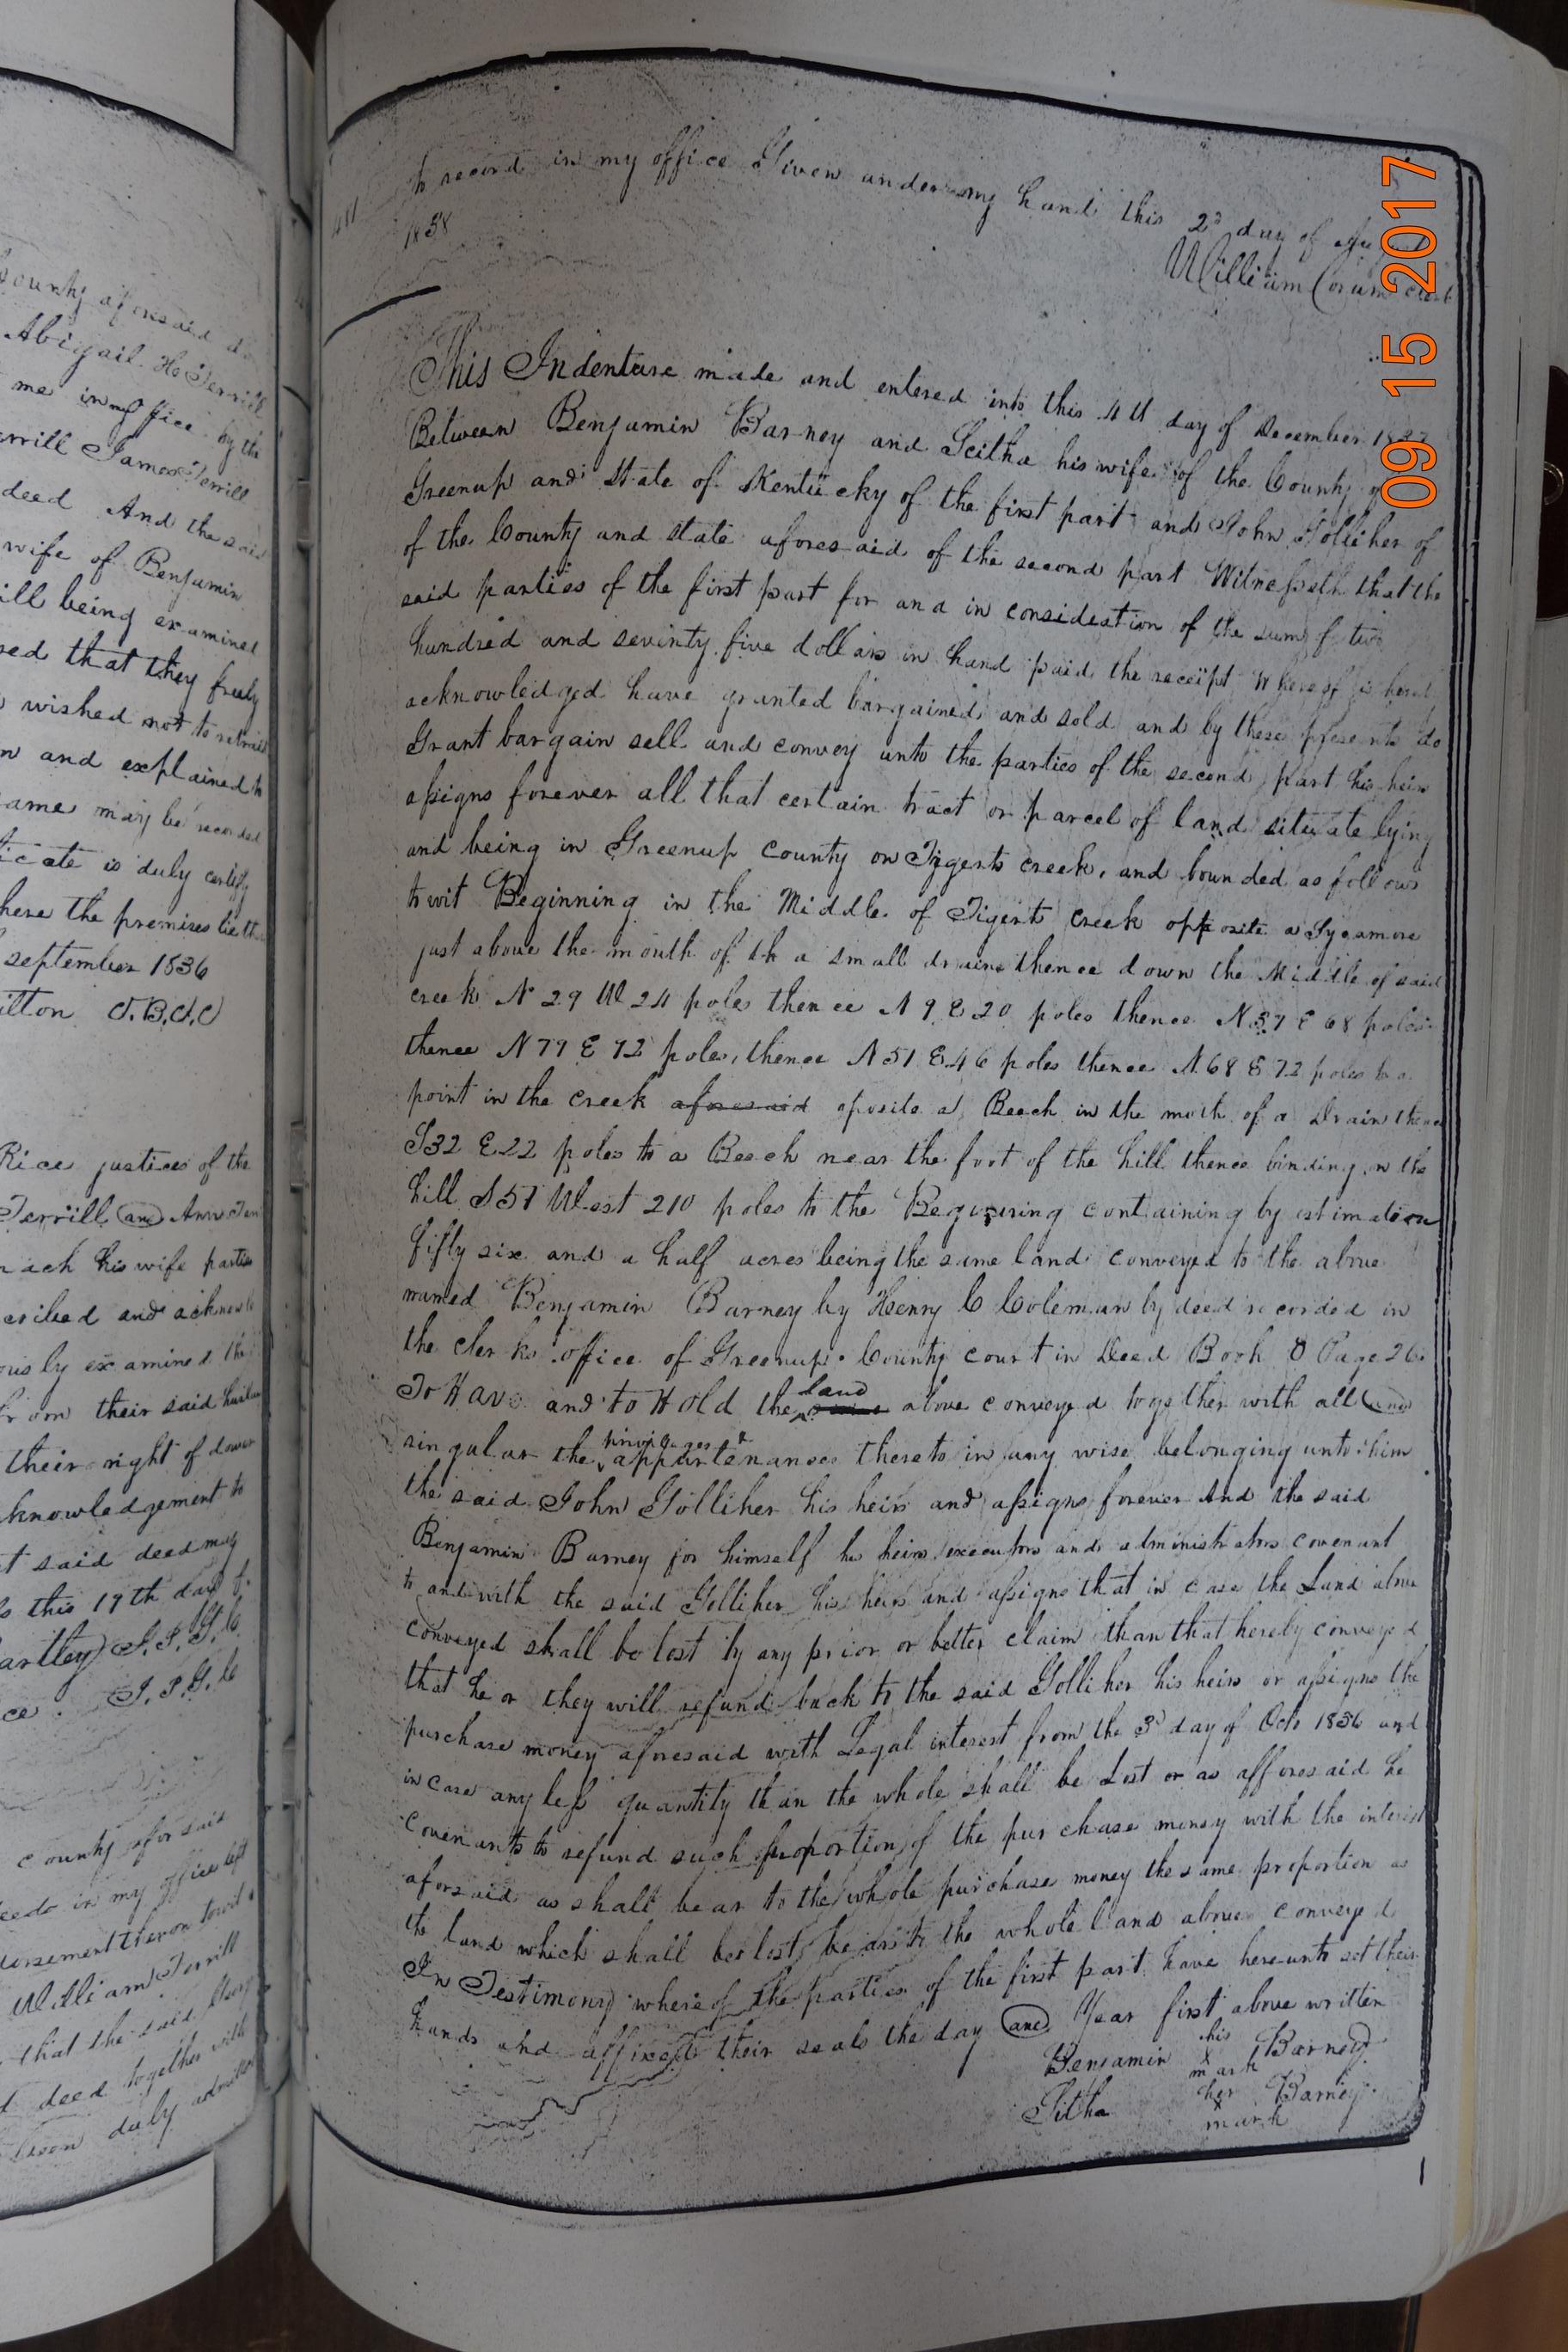 County aforesaid do
Abigail. H. Terrill
me in my office by the
errill James Terrill
deed And the said
wife of Benjamin
ill being examined
red that they freely
wished not to retract
n and explained to
same may be recorded
icate is duly certify
here the premises lie the
september 1836
ilton J.B.C.C
Rice justices of the
Terrill and Ann Ter
nach his wife parties
cribed and acknowle
ously examined the
from their said husban
their right of dower
knowledgement to
t said deed may
s this 19th day of
artley J.P.G.C.
ce. J.P.G.C
County afor said
eeds in my office left
dorsement thereon towit
William Terrill
that the said
t deed together with
been duly admitted
to record in my office Given under my hand this 2d day of
1838
William Corum clerk
This Indenture made and entered into this 4th day of December 1837
Between Benjamin Barney and Seitha his wife of the County of
Greenup and State of Kentucky of the first part and John Golliher of
of the County and state aforesaid of the second part Witnesseth that the
said parties of the first part for and in consideation of the sum of two
hundred and seventy five dollars in hand paid the receipt whereof is hereb
acknowledged have granted bargained and sold and by these presents do
Grant bargain sell and convey unto the parties of the second part his heirs
assigns forever all that certain tract or parcel of land situate lying
and being in Greenup County on Tygerts creek, and bounded as follows
to wit Beginning in the Middle of Tigerts Creek opposite a Sycamore
just above the mouth of th a small drain thence down the Middle of said
creek N 29 W 24 poles thence N 9 E 20 poles thence N 37 E 68 poles
thence N 79 E 72 poles, thence N 51 E 46 poles thence N 68 E 72 poles to a
point in the creek aforesaid oposite a Beech in the moth of a Drain thence
S32 E22 poles to a Beech near the foot of the hill thence binding on the
hill S 51 West 210 poles to the Begining containing by estimation
fifty six and a half acres being the same land conveyed to the above
named Benjamin Barney by Henry C Coleman by deed recorded in
the clerks office of Greenup County court in Deed Book Page 26
To Have and to Hold the land above conveyed together with all and
singular the privileges & appurtenances thereto in any wise belonging unto him
the said John Golliher his heirs and assigns forever And the said
Benjamin Barney for himself he heirs executors and administrators covenant
to and with the said Golliher his heirs and assigns that in case the Land above
conveyed shall be lost by any prior or better claim than that hereby conveyed
that he or they will refund back to the said Golliher his heirs or assigns the
purchase money aforesaid with Legal interest from the 3d day of Octo 1836 and
in case any less quantity than the whole shall be Lost or as afforesaid he
covenants to refund such proportion of the purchase money with the interest
aforsaid as shall bear to the whole purchase money the same proportion as
the land which shall be lost, bears to the whole land above conveyed
In Testimony whereof the parties of the first part have hereunto set their
hands and affixed their seals the day and Year first above written
Benjamin his x mark Barney
Sitha her x mark Barney
09 15 2017